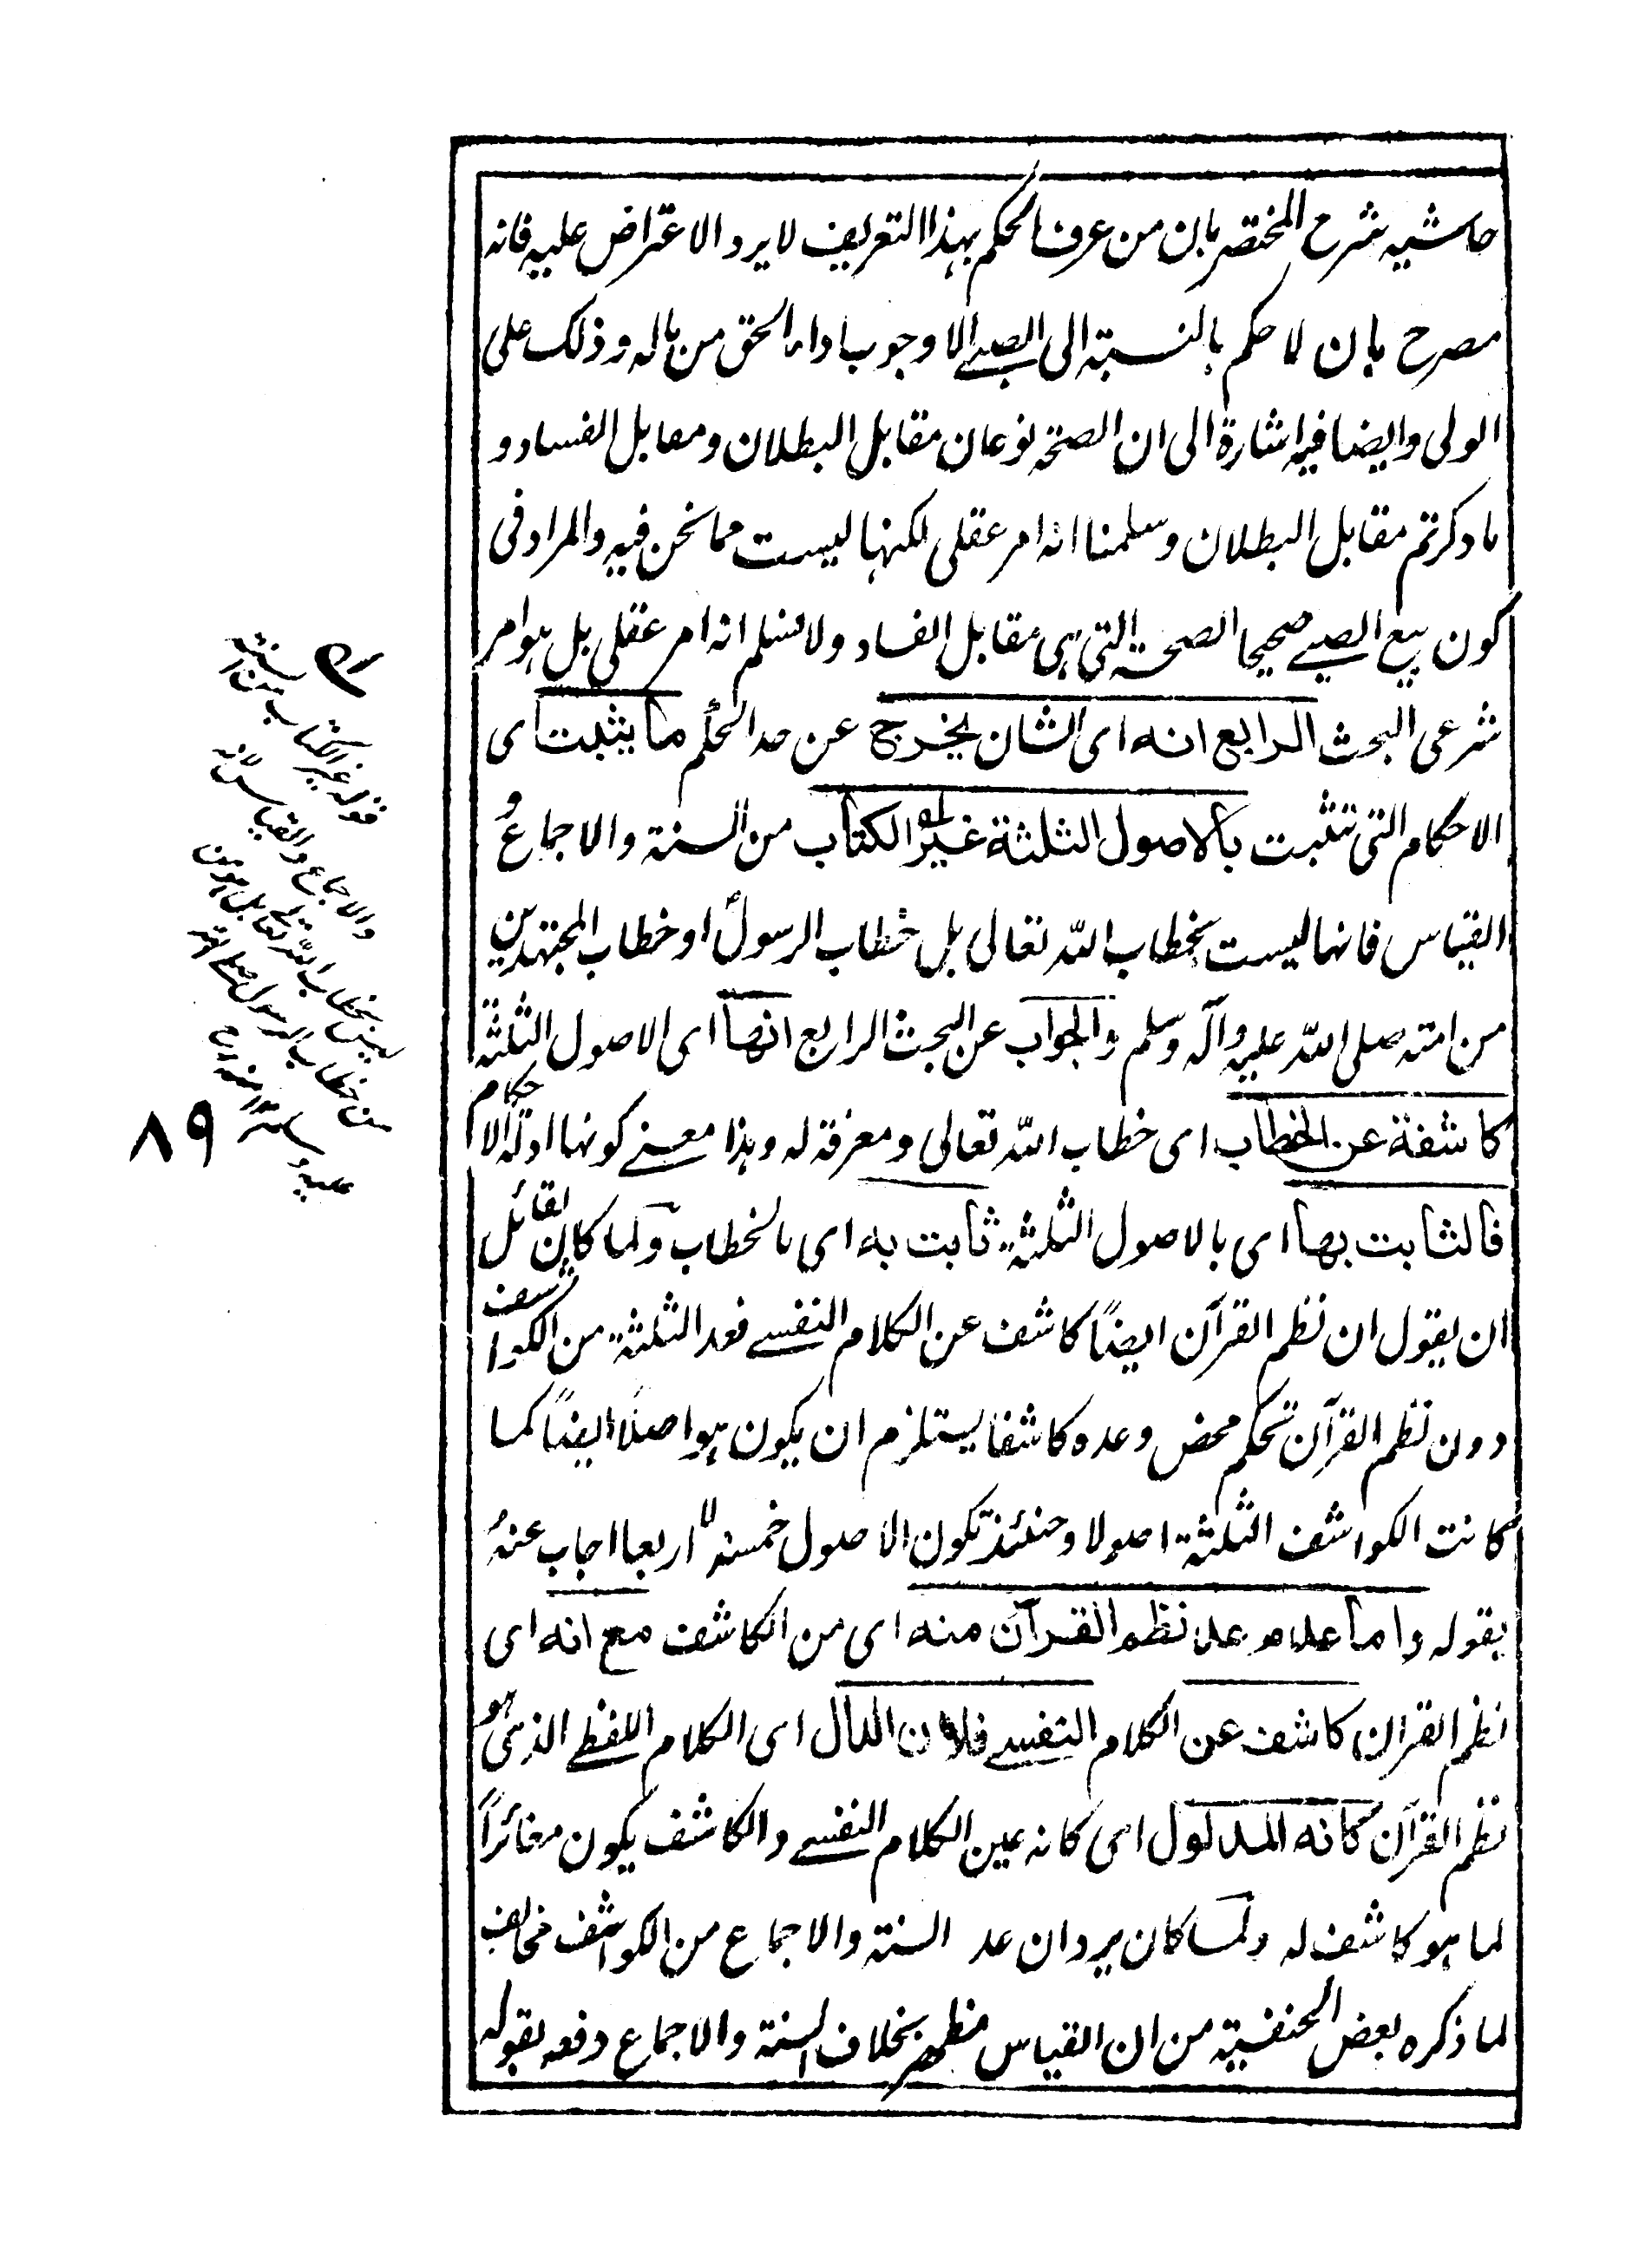 حاشيه شرح المختصر بان من عرف الحكم بهذا التعريف لا يرد الاعتراض عليه فانه
مصرح بان لا حكم بالنسبة الى الصبي الا وجوب اداء الحق من ماله وذلك على
الولى وايضا فيه اشارة الى ان الصحة نوعان مقابل البطلان ومقابل الفساد و
ما ذكرتم مقابل البطلان وسلمنا انه امر عقلى لكنها ليست مما نحن فيه والمراد فى
كون بيع الصبي صحيحا الصحة التى هى مقابل الفساد ولا نسلم انه امر عقلى بل هو امر
شرعى البحث الرابع انه اى الشان يخرج عن حد الحكم ما يثبت اى
الاحكام التى تثبت بالاصول الثلثة غير الكتاب من السنة والاجماع و
القياس فانها ليست بخطاب الله تعالى بل خطاب الرسول او خطاب المجتهدين
من امته صلى الله عليه وآله وسلم والجواب عن البحث الرابع انها اى الاصول الثلثة
كاشفة عن الخطاب اى خطاب الله تعالى ومعرفة له وهذا معنى كونها ادلة الاحكام
فالثابت بها اى بالاصول الثلثة ثابت به اى بالخطاب ولما كان لقائل
ان يقول ان نظم القرآن ايضاً كاشف عن الكلام النفسي فعد الثلثة من الكواشف
دون نظم القرآن تحكم محض وعده كاشفا يستلزم ان يكون هو اصلاً ايضاً كما
كانت الكواشف الثلثة اصولا وحنئذ تكون الاصول خمسة لا اربعا اجاب عنه
بقوله واما عدم عد نظم القرآن منه اى من الكاشف مع انه اى
نظم القران كاشف عن الكلام النفسي فلان الدال اى الكلام اللفظي الذى هو
نظم القرآن كانه المدلول اى كانه عين الكلام النفسي والكاشف يكون مغائراً
لما هو كاشف له ولما كان يرد ان عد السنة والاجماع من الكواشف مخالف
لما ذكره بعض الحنفية من ان القياس مظهر بخلاف السنة والاجماع دفعه بقوله
قوله غير الكتاب من السنة
والاجماع والقياس لانه
ليس بخطاب الله تعالى بل هو من
من خطاب الرسول صلى الله
عليه و سلم
٨٩